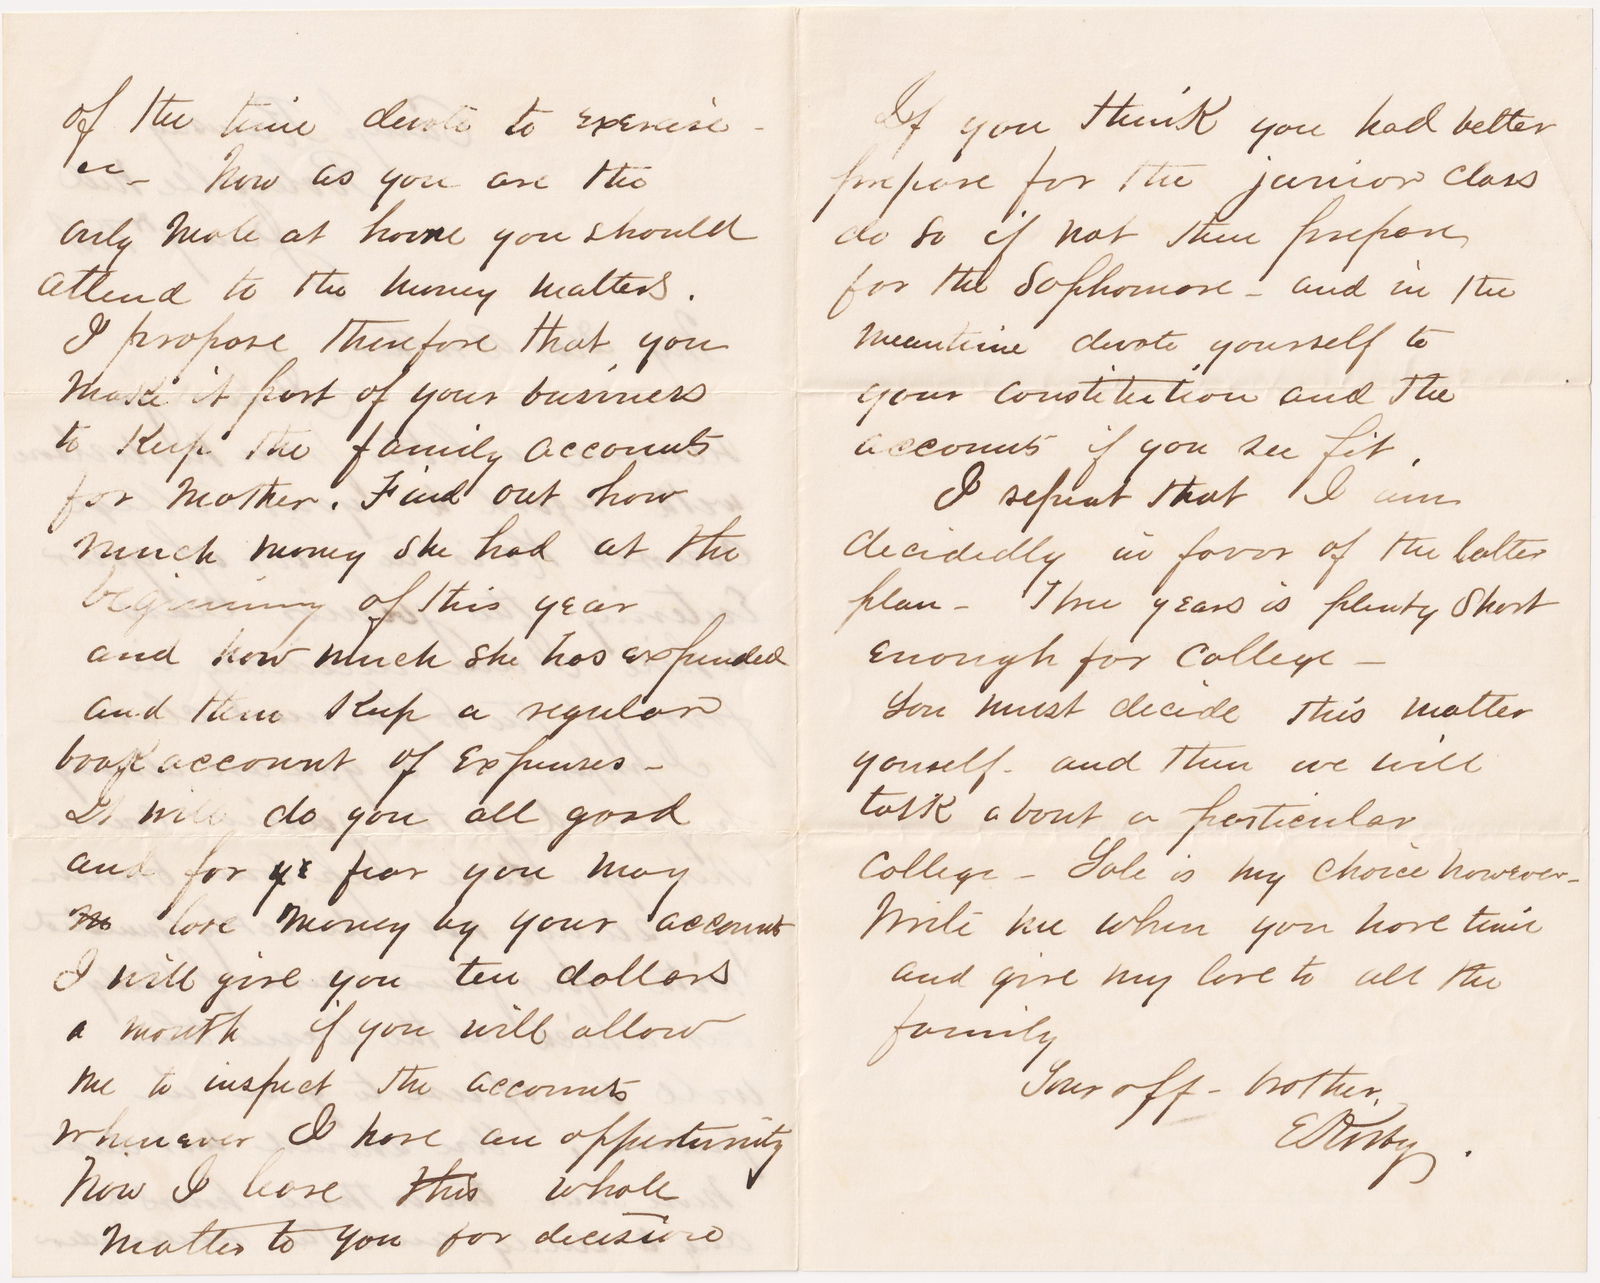 of the time devote to exercise -
&c - Now as you are the
only male at home you should
attend to the money matters.
I propose therefore that you
make it part of your business
to keep the family accounts
for Mother. Find out how
much money she had at the
beginning of this year
and how much she has expended
and then keep a regular
book account of expenses -
It will do you all good
and for fear you may
lose money by your accounts
I will give you ten dollars
a month if you will allow
me to inspect the accounts
whenever I have an opportunity
Now I leave this whole
matter to you for decision
If you think you had better
prepare for the junior class
do so if not then prepare
for the Sophomore - and in the
meantime devote yourself to
your constitution and the
accounts if you see fit.
I repeat that I am
decidedly in favor of the latter
plan - Three years is plenty short
enough for College -
You must decide this matter
yourself - and then we will
talk about a particular
College - Yale is my choice however -
Write me when you have time
and give my love to all the
family
Your aff - brother.
E Kirby.